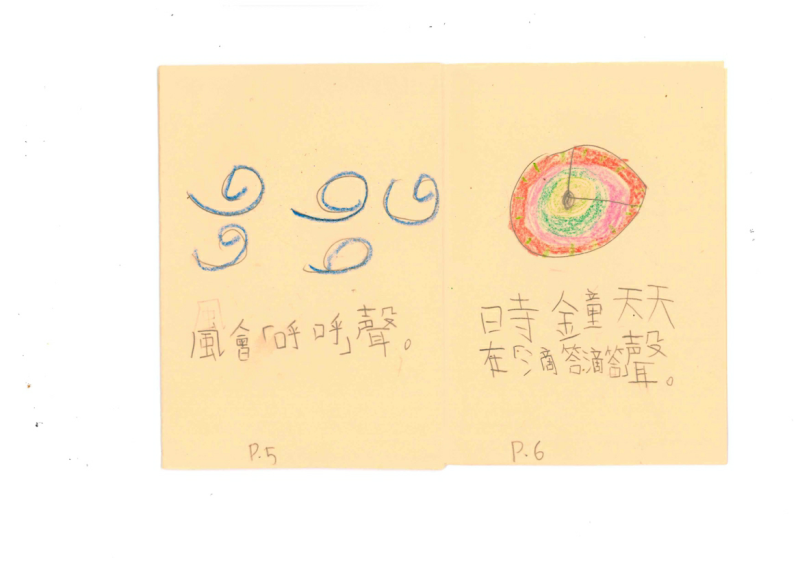 風會「呼呼」聲。
P.5
時鐘天天
在「滴答滴答」聲。
P.6